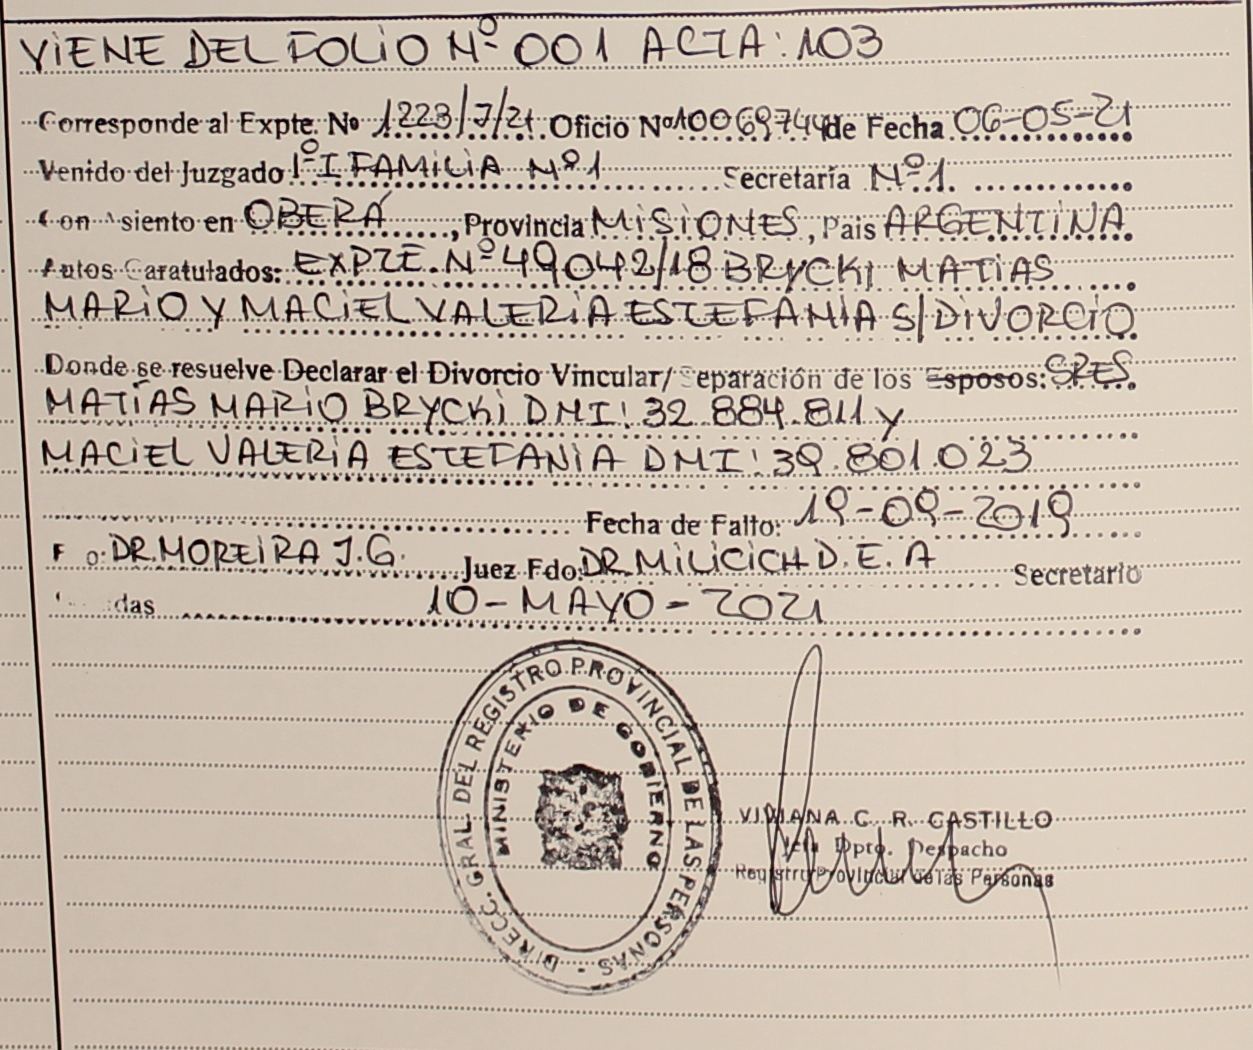 VIENE DEL FOLIO Nº 001 ACTA: 103
Corresponde al Expte. Nº 1223/J/21 Oficio Nº 10069744 de Fecha 06-05-21
Venido del Juzgado 1º I FAMILIA Nº 1 Secretaría Nº 1.
Con Asiento en OBERÁ, Provincia MISIONES, Pais ARGENTINA
Autos Caratulados: EXPTE. Nº 49042/18 BRYCKI MATIAS
MARIO Y MACIEL VALERIA ESTEFANIA S/DIVORCIO
Donde se resuelve Declarar el Divorcio Vincular/Separación de los Esposos: SRES
MATÍAS MARIO BRYCKI DNI: 32.884.811 y
MACIEL VALERIA ESTEFANIA DNI: 39.801.023
Fecha de Fallo: 19-09-2019
F o: DR. MOREIRA J.G. Juez Fdo: DR. MILICICH D.E.A Secretario
das 10-MAYO-2021
DIRECC. GRAL. DEL REGISTRO PROVINCIAL DE LAS PERSONAS -
MINISTERIO DE GOBIERNO
VIVIANA C. R. CASTILLO
Jefa Dpto. Despacho
Registro Provincial de las Personas